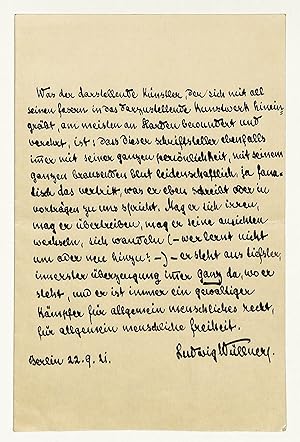 Was der darstellende Künstler, der sich mit all
seinen Fasern in das darzustellende Kunstwerk hinein-
gräbt, am meisten an Harden bewundert und
verehrt, ist: dass dieser Schriftsteller ebenfalls
imer mit seiner ganzen Persönlichkeit, mit seinem
ganzen brausenden Blut leidenschaftlich, ja fana-
tisch das vertritt, was er eben schreibt oder in
Vorträgen zu uns spricht. Mag er sich irren,
mag er übertreiben, mag er seine Ansichten
wechseln, sich wandeln (– wer lernt nicht
um oder neu hinzu? –) – er steht aus tiefster,
innerster Überzeugung imer ganz da, wo er
steht, und er ist immer ein gewaltiger
Kämpfer für allgemein menschliches Recht,
für allgemein menschliche Freiheit.
Berlin 22.9.21.
Ludwig Wüllner.